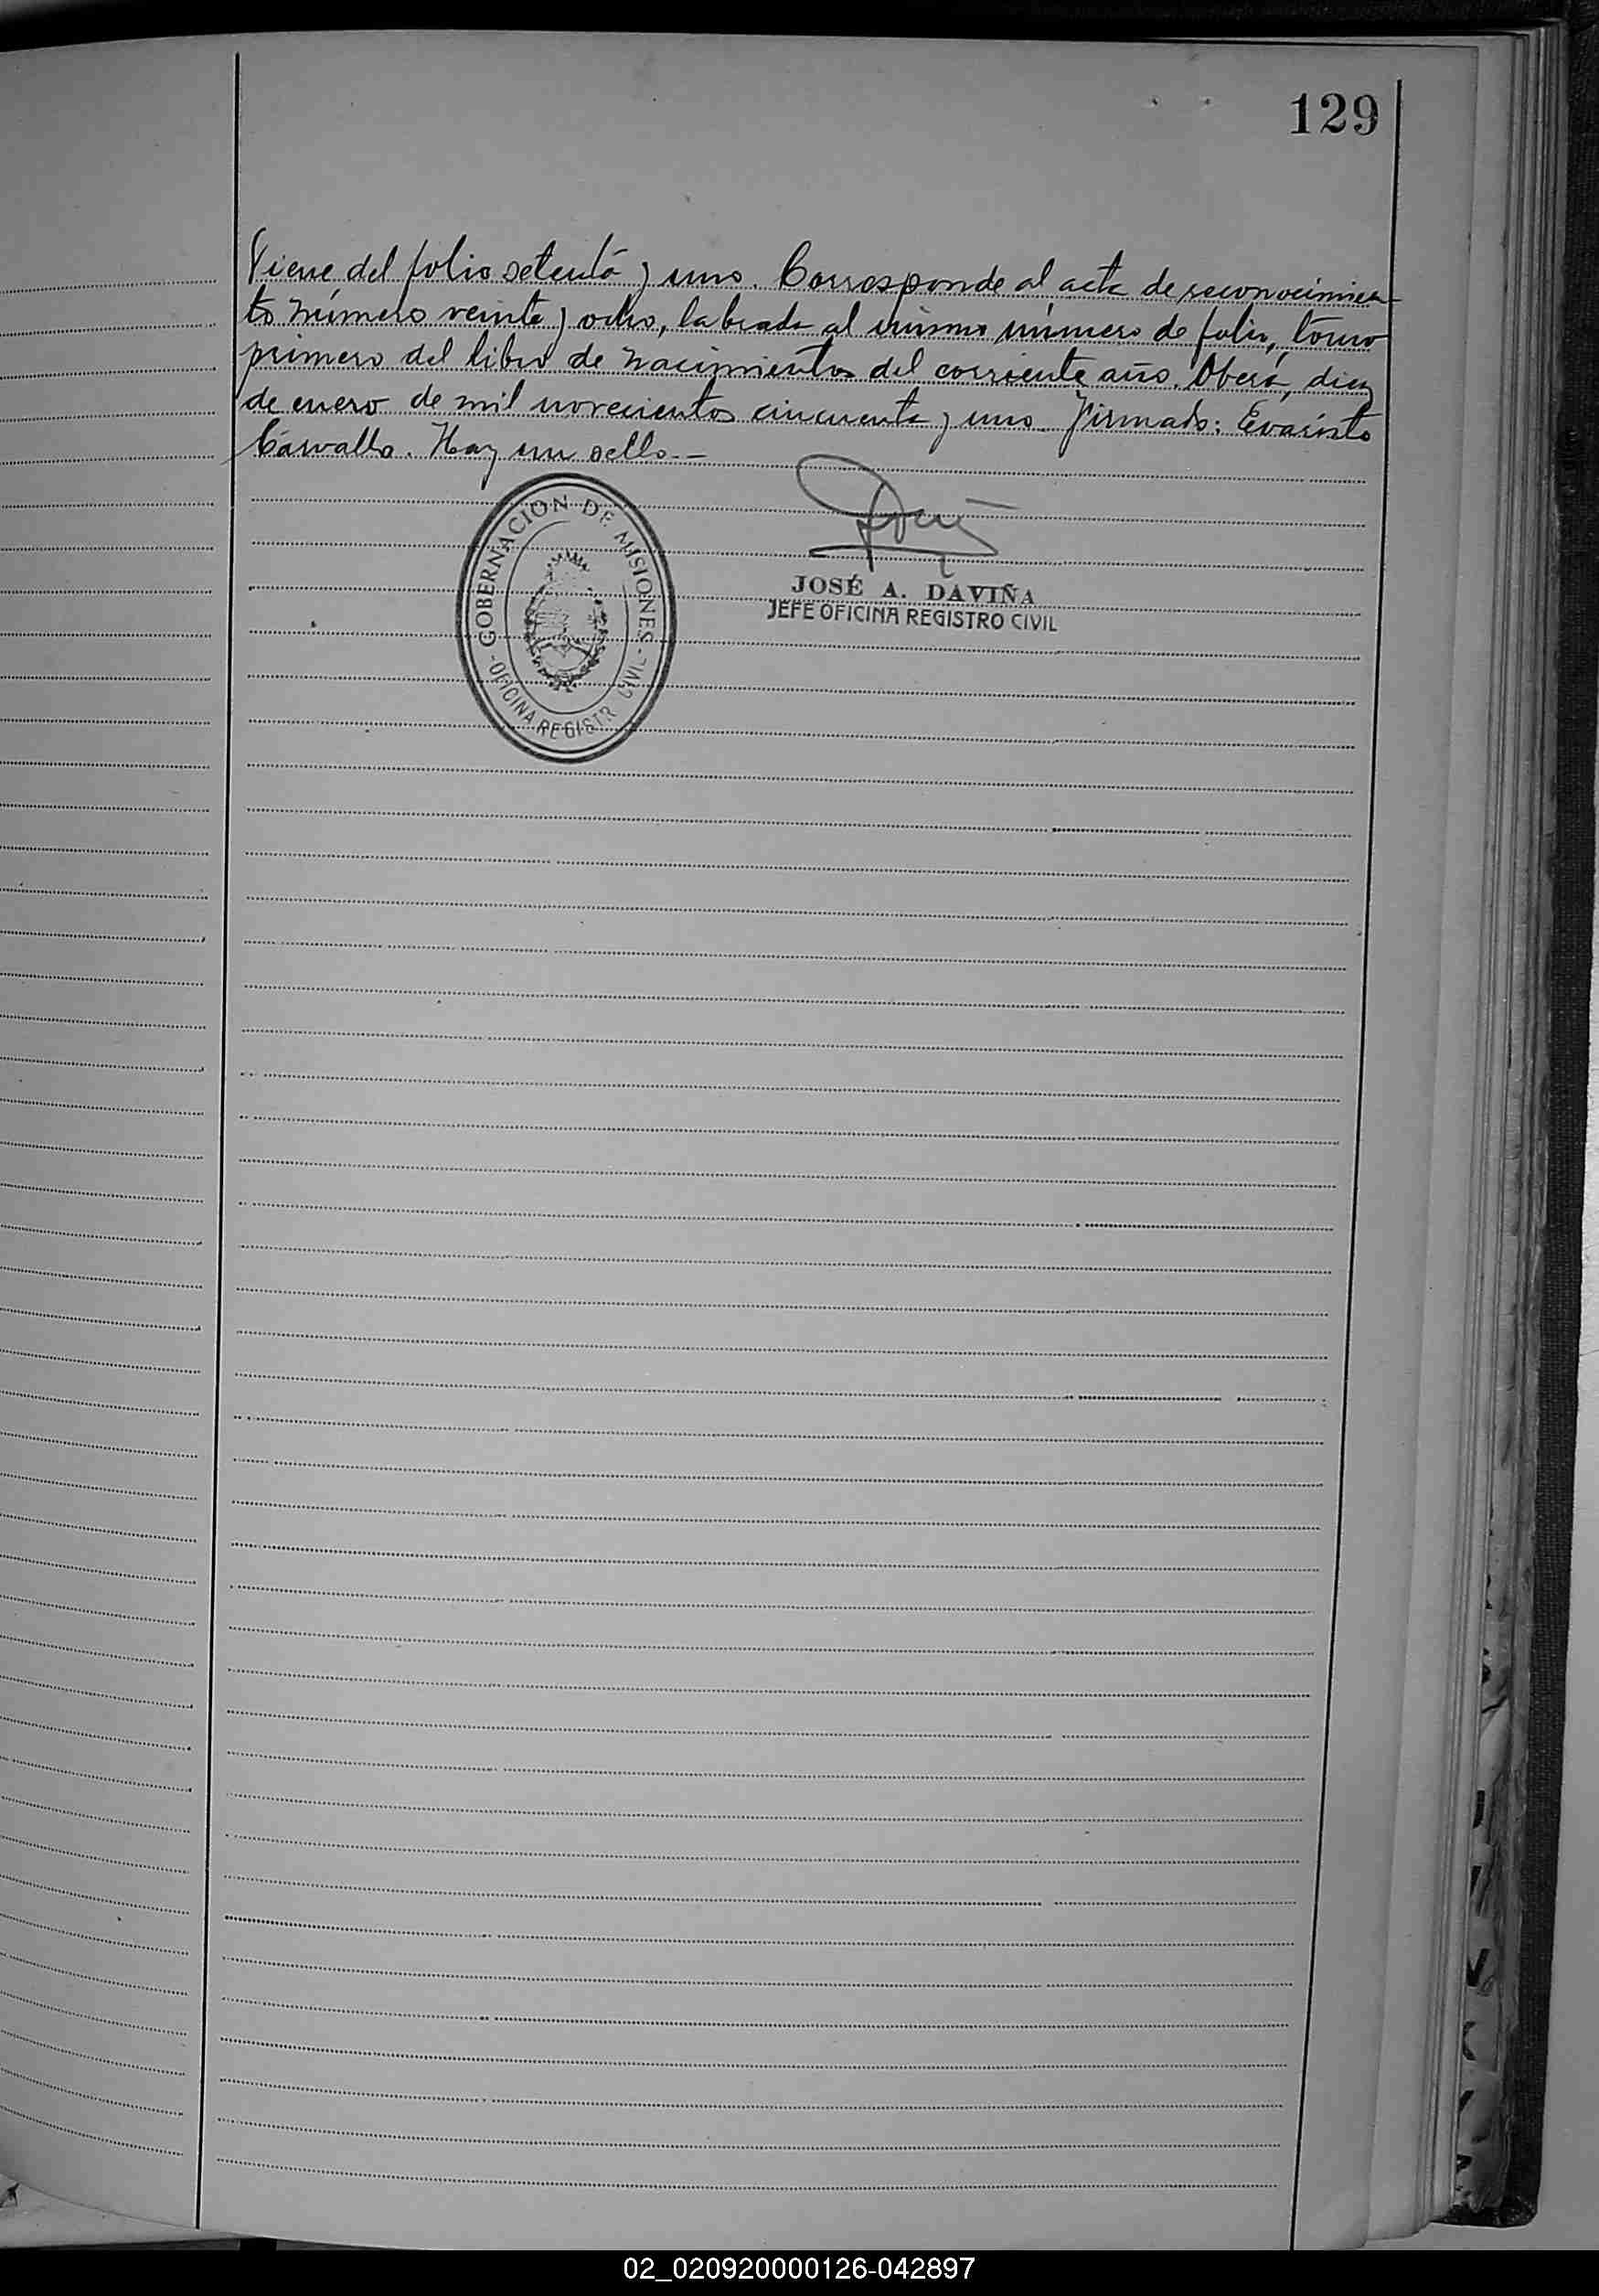 129
Viene del folio setenta y uno. Corresponde al acta de reconocimien-
to número veinte y ocho, labrada al mismo número de folio, tomo
primero del libro de nacimientos del corriente año. Oberá, diez
de enero de mil novecientos cincuenta y uno. Firmado: Evaristo
Carvallo. Hay un sello.-
GOBERNACION DE MISIONES
-OFICINA REGISTR CIVIL-
JOSÉ A. DAVIÑA
JEFE OFICINA REGISTRO CIVIL
02_020920000126-042897